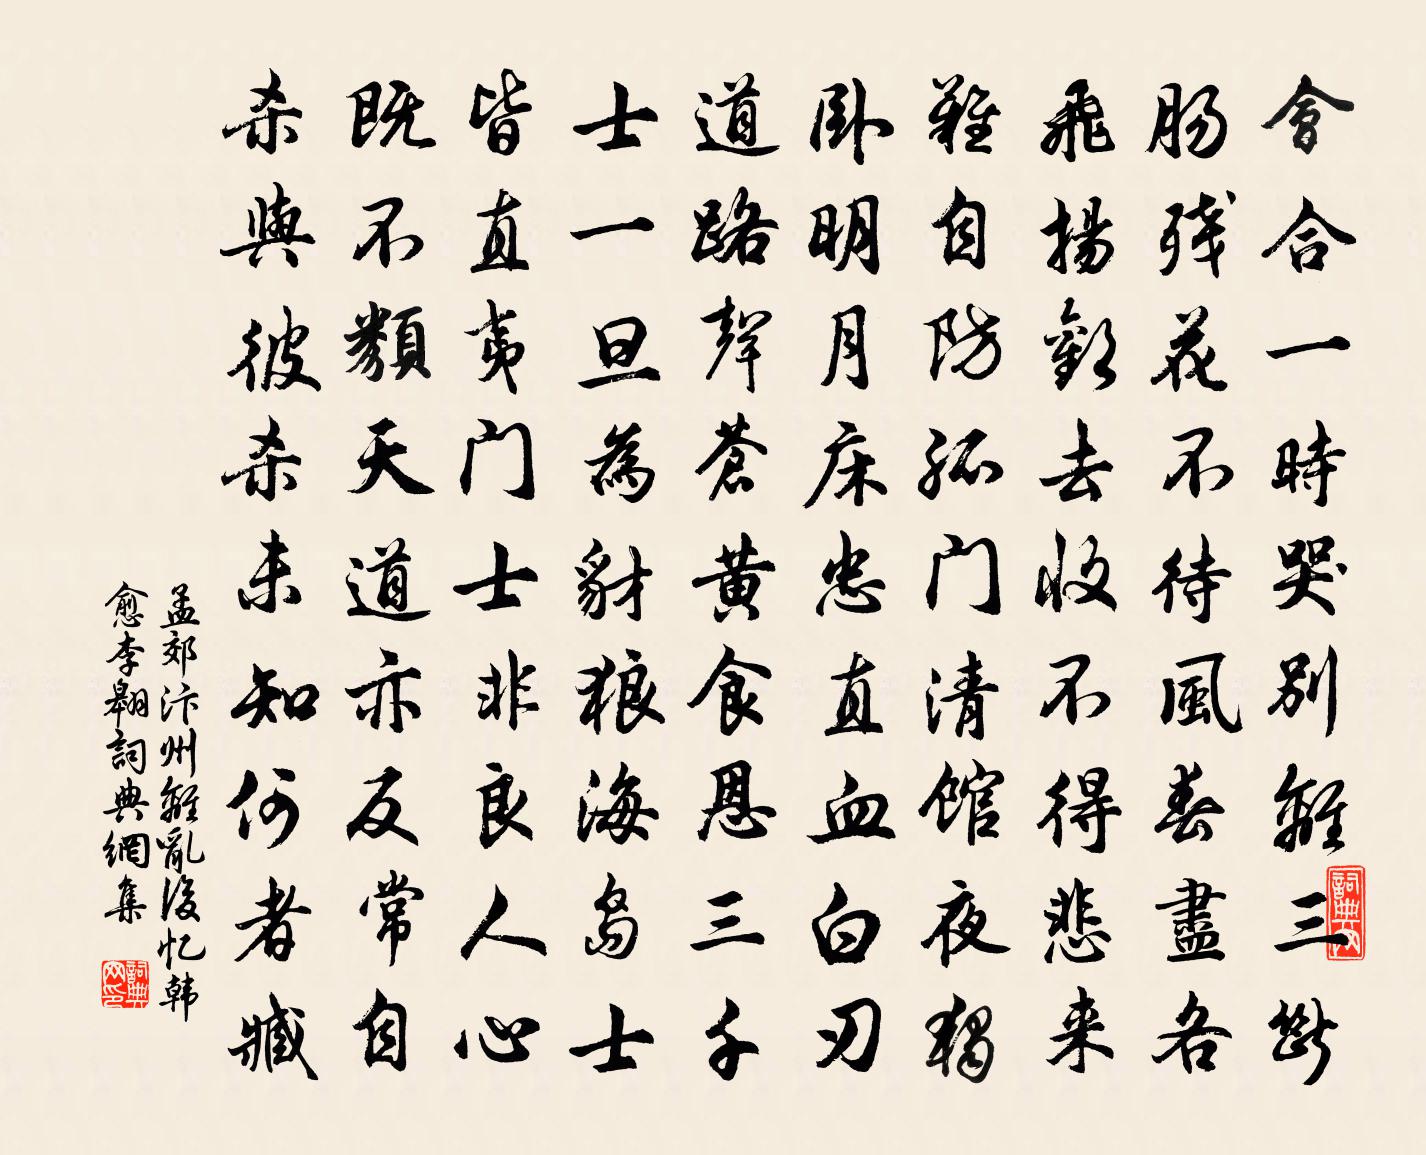 會合一時哭別離三斷
腸殘花不待風春盡各
飛揚歡去收不得悲来
難自防孤门清館夜獨
卧明月床忠直血白刃
道路聲蒼黄食恩三千
士一旦為豺狼海島士
皆直夷门士非良人心
既不類天道亦反常自
杀與彼杀未知何者臧
孟郊汴州離亂後忆韩
愈李翱詞典網集